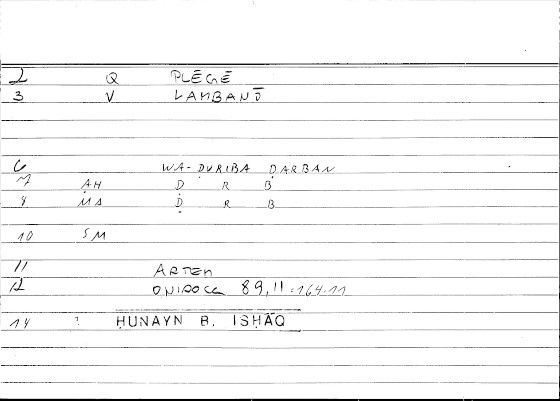 2 Q PLĒGĒ
3 V LAMBANŌ
6 WA-ḌURIBA ḌARBAN
7 AH Ḍ R B
8 MA Ḍ R B
10 SM
11 ARTEM
12 ONIROCR 89,11=164.11
14 ? ḤUNAYN B. ISḤĀQ